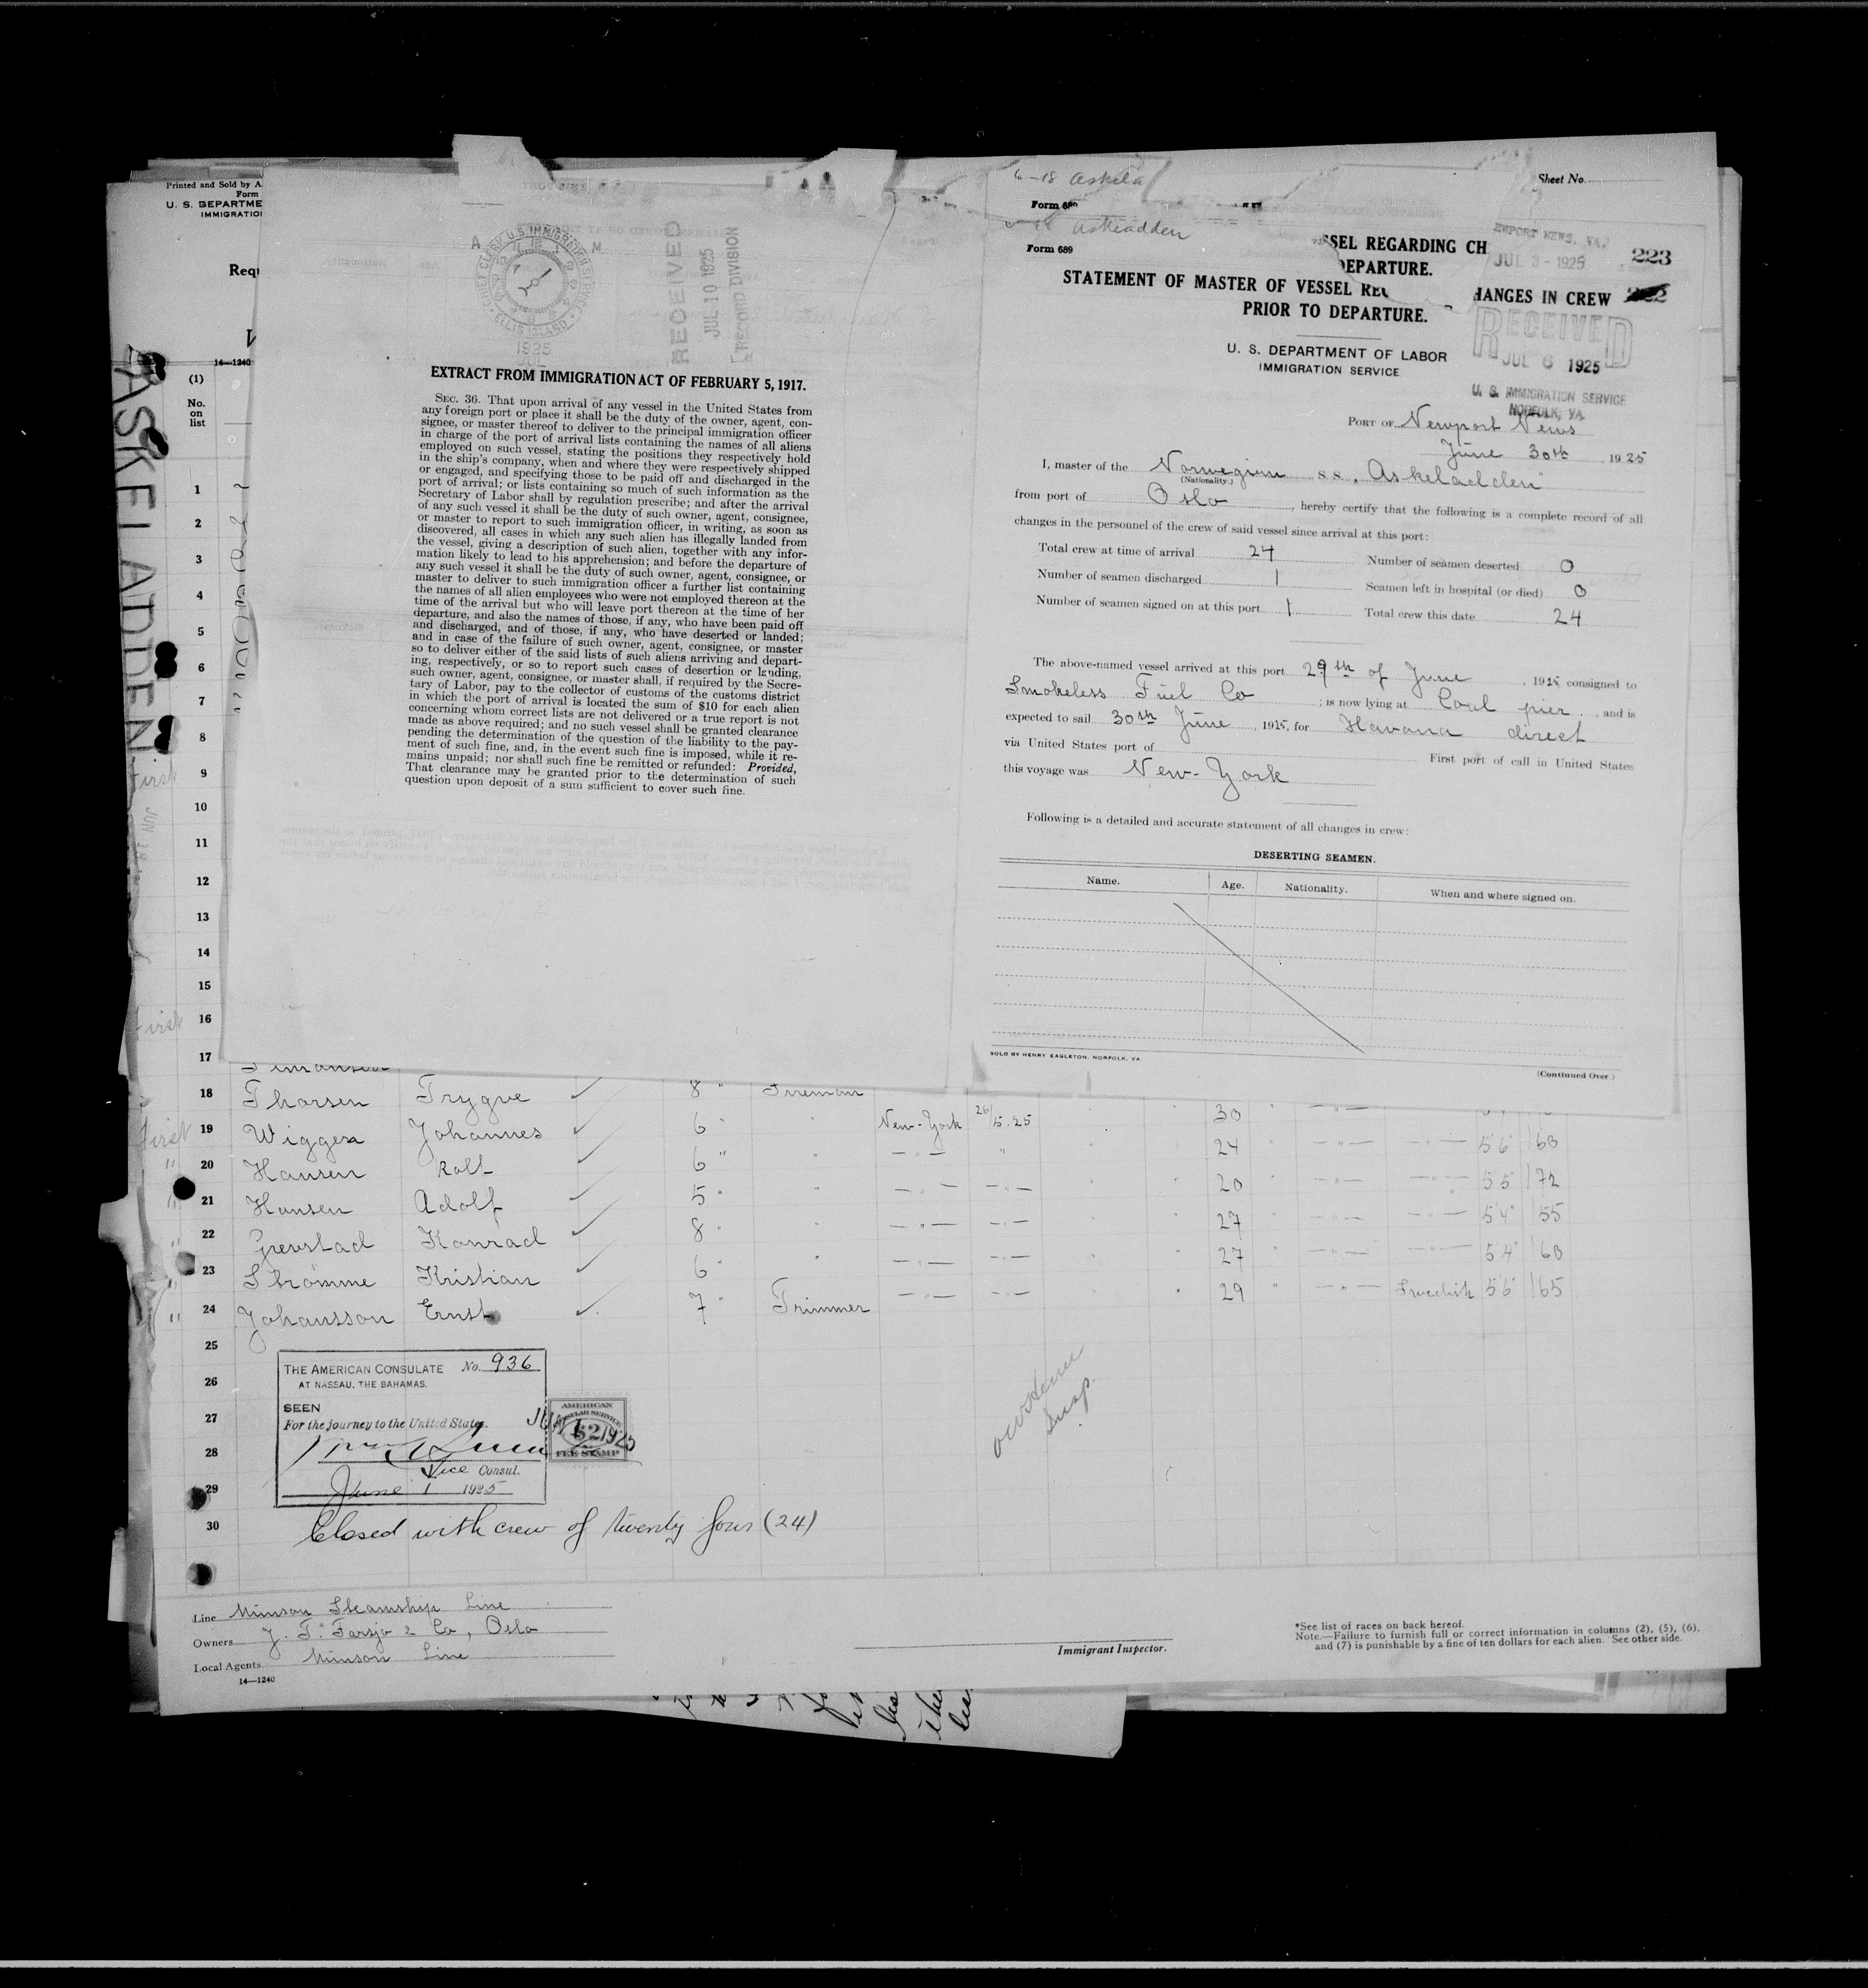 Printed and Sold by A.
Form
U. S. DEPARTME
IMMIGRATIO
Requ
14—1240
(1)
No.
on
list
ASKELADDEN
JUN 18
1
2
3
4
5
6
7
8
9
10
11
12
13
14
15
16
17
A M
CHIEF CLERK U.S. IMMIGRATION SERVICE
ELLIS ISLAND
1925
JUL
RECEIVED
JUL 10 1925
RECORD DIVISION
EXTRACT FROM IMMIGRATION ACT OF FEBRUARY 5, 1917.
SEC. 36. That upon arrival of any vessel in the United States from
any foreign port or place it shall be the duty of the owner, agent, con-
signee, or master thereof to deliver to the principal immigration officer
in charge of the port of arrival lists containing the names of all aliens
employed on such vessel, stating the positions they respectively hold
in the ship's company, when and where they were respectively shipped
or engaged, and specifying those to be paid off and discharged in the
port of arrival; or lists containing so much of such information as the
Secretary of Labor shall by regulation prescribe; and after the arrival
of any such vessel it shall be the duty of such owner, agent, consignee,
or master to report to such immigration officer, in writing, as soon as
discovered, all cases in which any such alien has illegally landed from
the vessel, giving a description of such alien, together with any infor-
mation likely to lead to his apprehension; and before the departure of
any such vessel it shall be the duty of such owner, agent, consignee, or
master to deliver to such immigration officer a further list containing
the names of all alien employees who were not employed thereon at the
time of the arrival but who will leave port thereon at the time of her
departure, and also the names of those, if any, who have been paid off
and discharged, and of those, if any, who have deserted or landed;
and in case of the failure of such owner, agent, consignee, or master
so to deliver either of the said lists of such aliens arriving and depart-
ing, respectively, or so to report such cases of desertion or landing,
such owner, agent, consignee, or master shall, if required by the Secre-
tary of Labor, pay to the collector of customs of the customs district
in which the port of arrival is located the sum of $10 for each alien
concerning whom correct lists are not delivered or a true report is not
made as above required; and no such vessel shall be granted clearance
pending the determination of the question of the liability to the pay-
ment of such fine, and, in the event such fine is imposed, while it re-
mains unpaid; nor shall such fine be remitted or refunded: Provided,
That clearance may be granted prior to the determination of such
question upon deposit of a sum sufficient to cover such fine.
6-18 Askela
Sheet No.
Form 689
Askeladden
Form 689
SSEL REGARDING CH
DEPARTURE.
NEWPORT NEWS, VA.
JUL 3 - 1925
223
STATEMENT OF MASTER OF VESSEL RE HANGES IN CREW
PRIOR TO DEPARTURE.
U. S. DEPARTMENT OF LABOR
IMMIGRATION SERVICE
RECEIVED
JUL 6 1925
U. S. IMMIGRATION SERVICE
NORFOLK, VA.
PORT OF Newport News
June 30th, 1925
I, master of the Norwegian S. S. Askeladden
(Nationality.)
from port of Oslo, hereby certify that the following is a complete record of all
changes in the personnel of the crew of said vessel since arrival at this port:
Total crew at time of arrival 24 Number of seamen deserted 0
Number of seamen discharged 1 Seamen left in hospital (or died) 0
Number of seamen signed on at this port 1 Total crew this date 24
The above-named vessel arrived at this port 29th of June, 1925, consigned to
Smokeless Fuel Co; is now lying at Coal pier, and is
expected to sail 30th June, 1925, for Havana direct
via United States port of First port of call in United States
this voyage was New-York
Following is a detailed and accurate statement of all changes in crew:
DESERTING SEAMEN.
Name. Age. Nationality. When and where signed on.
SOLD BY HENRY EAGLETON, NORFOLK, VA.
(Continued Over)
18 Thorsen Trygve 8 " Fireman
first 19 Wigger Johannes 6 " " New-York 26/5.25 30
" 20 Hansen Rolf 6 " " —"— " 24 " —"— —"— 5'6" 160
" 21 Hansen Adolf 5 " " —"— —"— 20 " —"— —"— 5'5" 172
" 22 Grevstad Konrad 8 " —"— —"— 27 " —"— —"— 5'4" 155
" 23 Strömme Kristian 6 " " —"— —"— 27 " —"— —"— 5'4" 160
" 24 Johansson Ernst 7 " Trimmer —"— —"— 29 " —"— Swedish 5'6" 165
25
26
27
28
29
30
THE AMERICAN CONSULATE No. 936
AT NASSAU, THE BAHAMAS.
SEEN
For the journey to the United States.
Vice Consul.
June 1 1925
AMERICAN
CONSULAR SERVICE
$2
FEE STAMP
JUN 1 1925
Closed with crew of twenty four (24)
Line Munson Steamship Line
Owners J. T. Farsjo & Co, Oslo
Local Agents Munson Line
14—1240
Immigrant Inspector.
*See list of races on back hereof.
Note.—Failure to furnish full or correct information in columns (2), (5), (6),
and (7) is punishable by a fine of ten dollars for each alien. See other side.